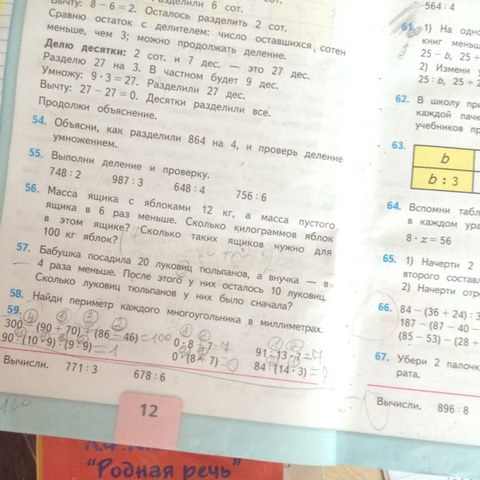 6 сот.
Вычту: 8 − 6 = 2. Осталось разделить 2 сот.
Сравню остаток с делителем: число оставшихся сотен
меньше, чем 3; можно продолжать деление.
Делю десятки: 2 сот. и 7 дес. — это 27 дес.
Разделю 27 на 3. В частном будет 9 дес.
Умножу: 9 · 3 = 27. Разделили 27 дес.
Вычту: 27 − 27 = 0. Десятки разделили все.
Продолжи объяснение.
54. Объясни, как разделили 864 на 4, и проверь деление
умножением.
55. Выполни деление и проверку.
748 : 2 987 : 3 648 : 4 756 : 6
56. Масса ящика с яблоками 12 кг, а масса пустого
ящика в 6 раз меньше. Сколько килограммов яблок
в этом ящике? Сколько таких ящиков нужно для
100 кг яблок?
57. Бабушка посадила 20 луковиц тюльпанов, а внучка — в
4 раза меньше. После этого у них осталось 10 луковиц.
Сколько луковиц тюльпанов у них было сначала?
58. Найди периметр каждого многоугольника в миллиметрах.
59.
300 − (90 + 70) − (86 − 46) = 100 0 : 8 + 7 = 7 91 : 13 · 7 = 7
90 : (10 · 9) · (9 : 9) = 1 0 · (8 + 7) = 0 84 : (14 · 3) =
Вычисли. 771 : 3 678 : 6
12
564 : 4
61. 1) На одно
книг меньш
25 − b, 25 +
2) Измени у
25 : b, 25 +
62. В школу при
каждой пач
учебников пр
63.
b
b : 3
64. Вспомни табл
в каждом ура
8 · x = 56
65. 1) Начерти 2
второго состав
2) Начерти отре
66. 84 − (36 + 24) : 3
187 − (87 − 40 −
(85 − 53) − (28 +
67. Убери 2 палочк
рата.
Вычисли. 896 : 8
"Родная речь"